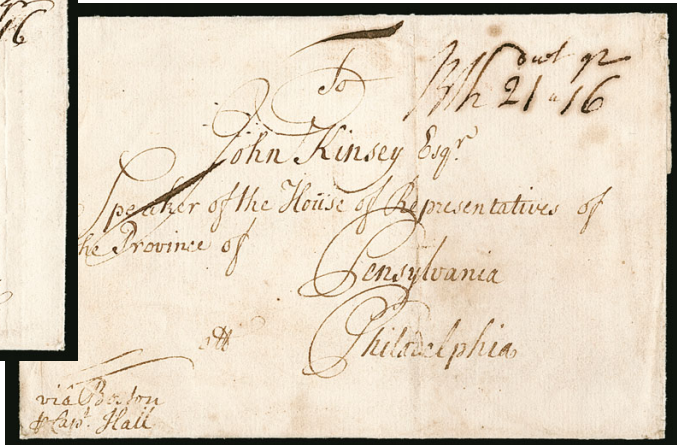 16
dwt gr
Wh 21 " 16
To
John Kinsey Esqr.
Speaker of the House of Representatives of
he Province of
Pensylvania
att
Philadelphia
viâ Boston
Capt. Hall